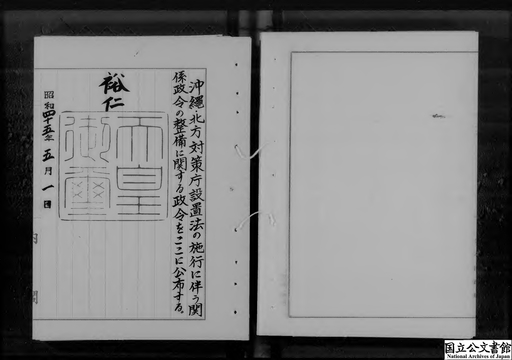 沖縄・北方対策庁設置法の施行に伴う関
係政令の整備に関する政令をここに公布する。
裕仁
天皇
御璽
昭和四十五年五月一日
内閣
国立公文書館
National Archives of Japan